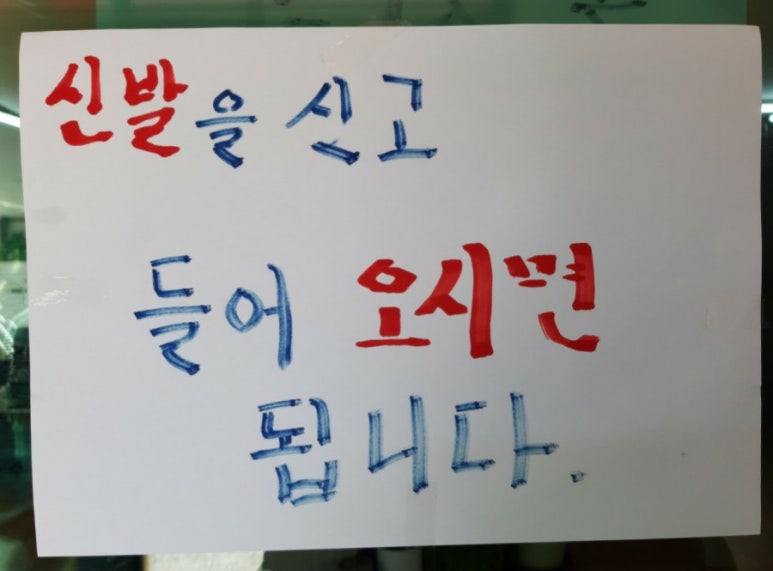 신발을 신고
들어 오시면
됩니다.